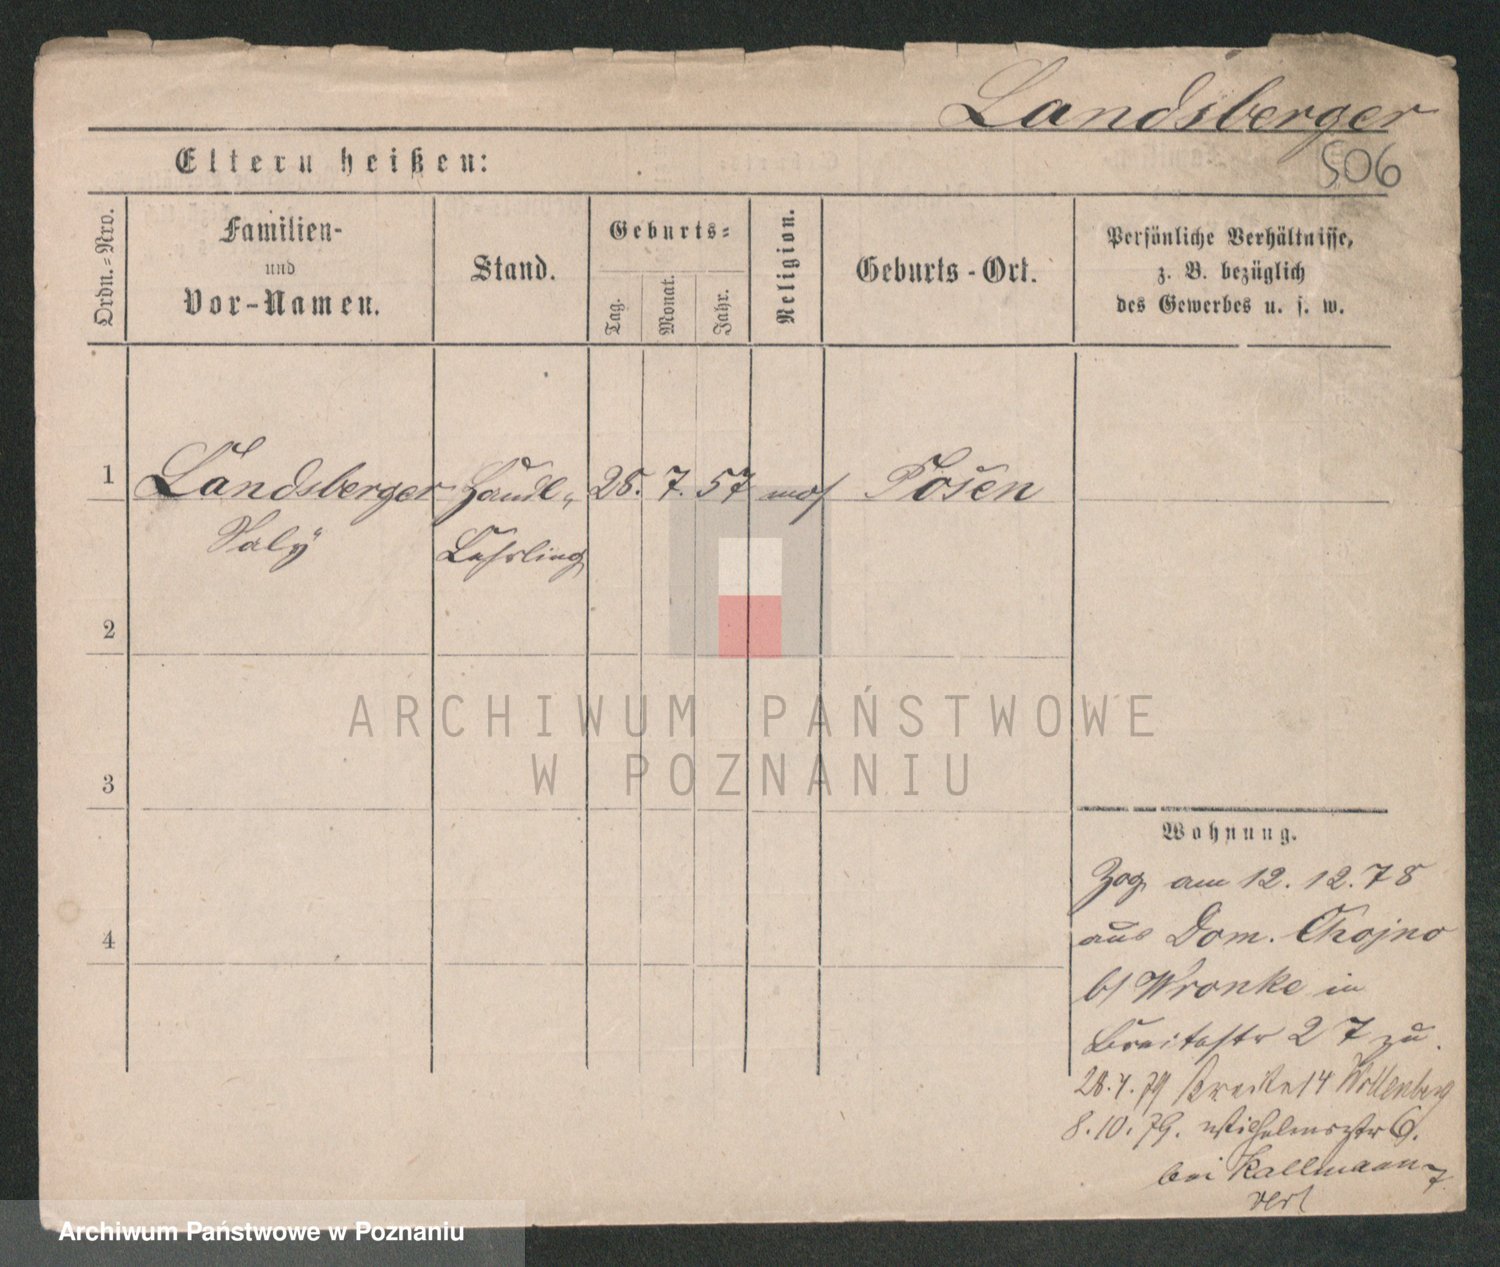 Landsberger
506
Eltern heißen:
Ordn.=Nro.
Familien-
und
Vor-Namen.
Stand.
Geburts=
Tag.
Monat.
Jahr.
Religion.
Geburts-Ort.
Persönliche Verhältnisse,
z. B. bezüglich
des Gewerbes u. s. w.
1 Landsberger Handl. 28. 7. 57 mos Posen
Saly Lehrling
2
3
4
ARCHIWUM PAŃSTWOWE
W POZNANIU
Wohnung.
Zog am 12.12.78
aus Dom. Chojno
b/ Wronke in
Breitestr 27 zu.
28.4.79 Breite 14 Wollenberg
8.10.79. Wilhelmsstr 6.
bei Kallmann
Archiwum Państwowe w Poznaniu